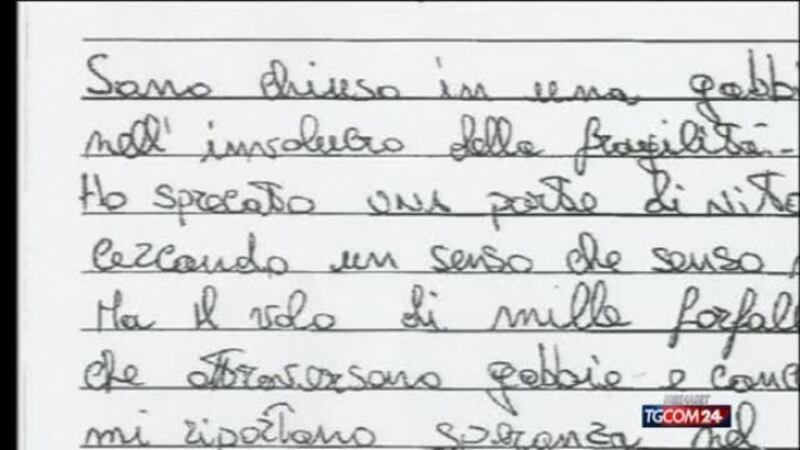 Sono chiuso in una gabbi
nell' involucro della fragilità-
Ho sprecato una parte di vita
cercando un senso che senso
Ma il volo di mille farfall
che attraversano gabbie e canc
mi riportano speranza nel
MEDIASET
TGCOM24